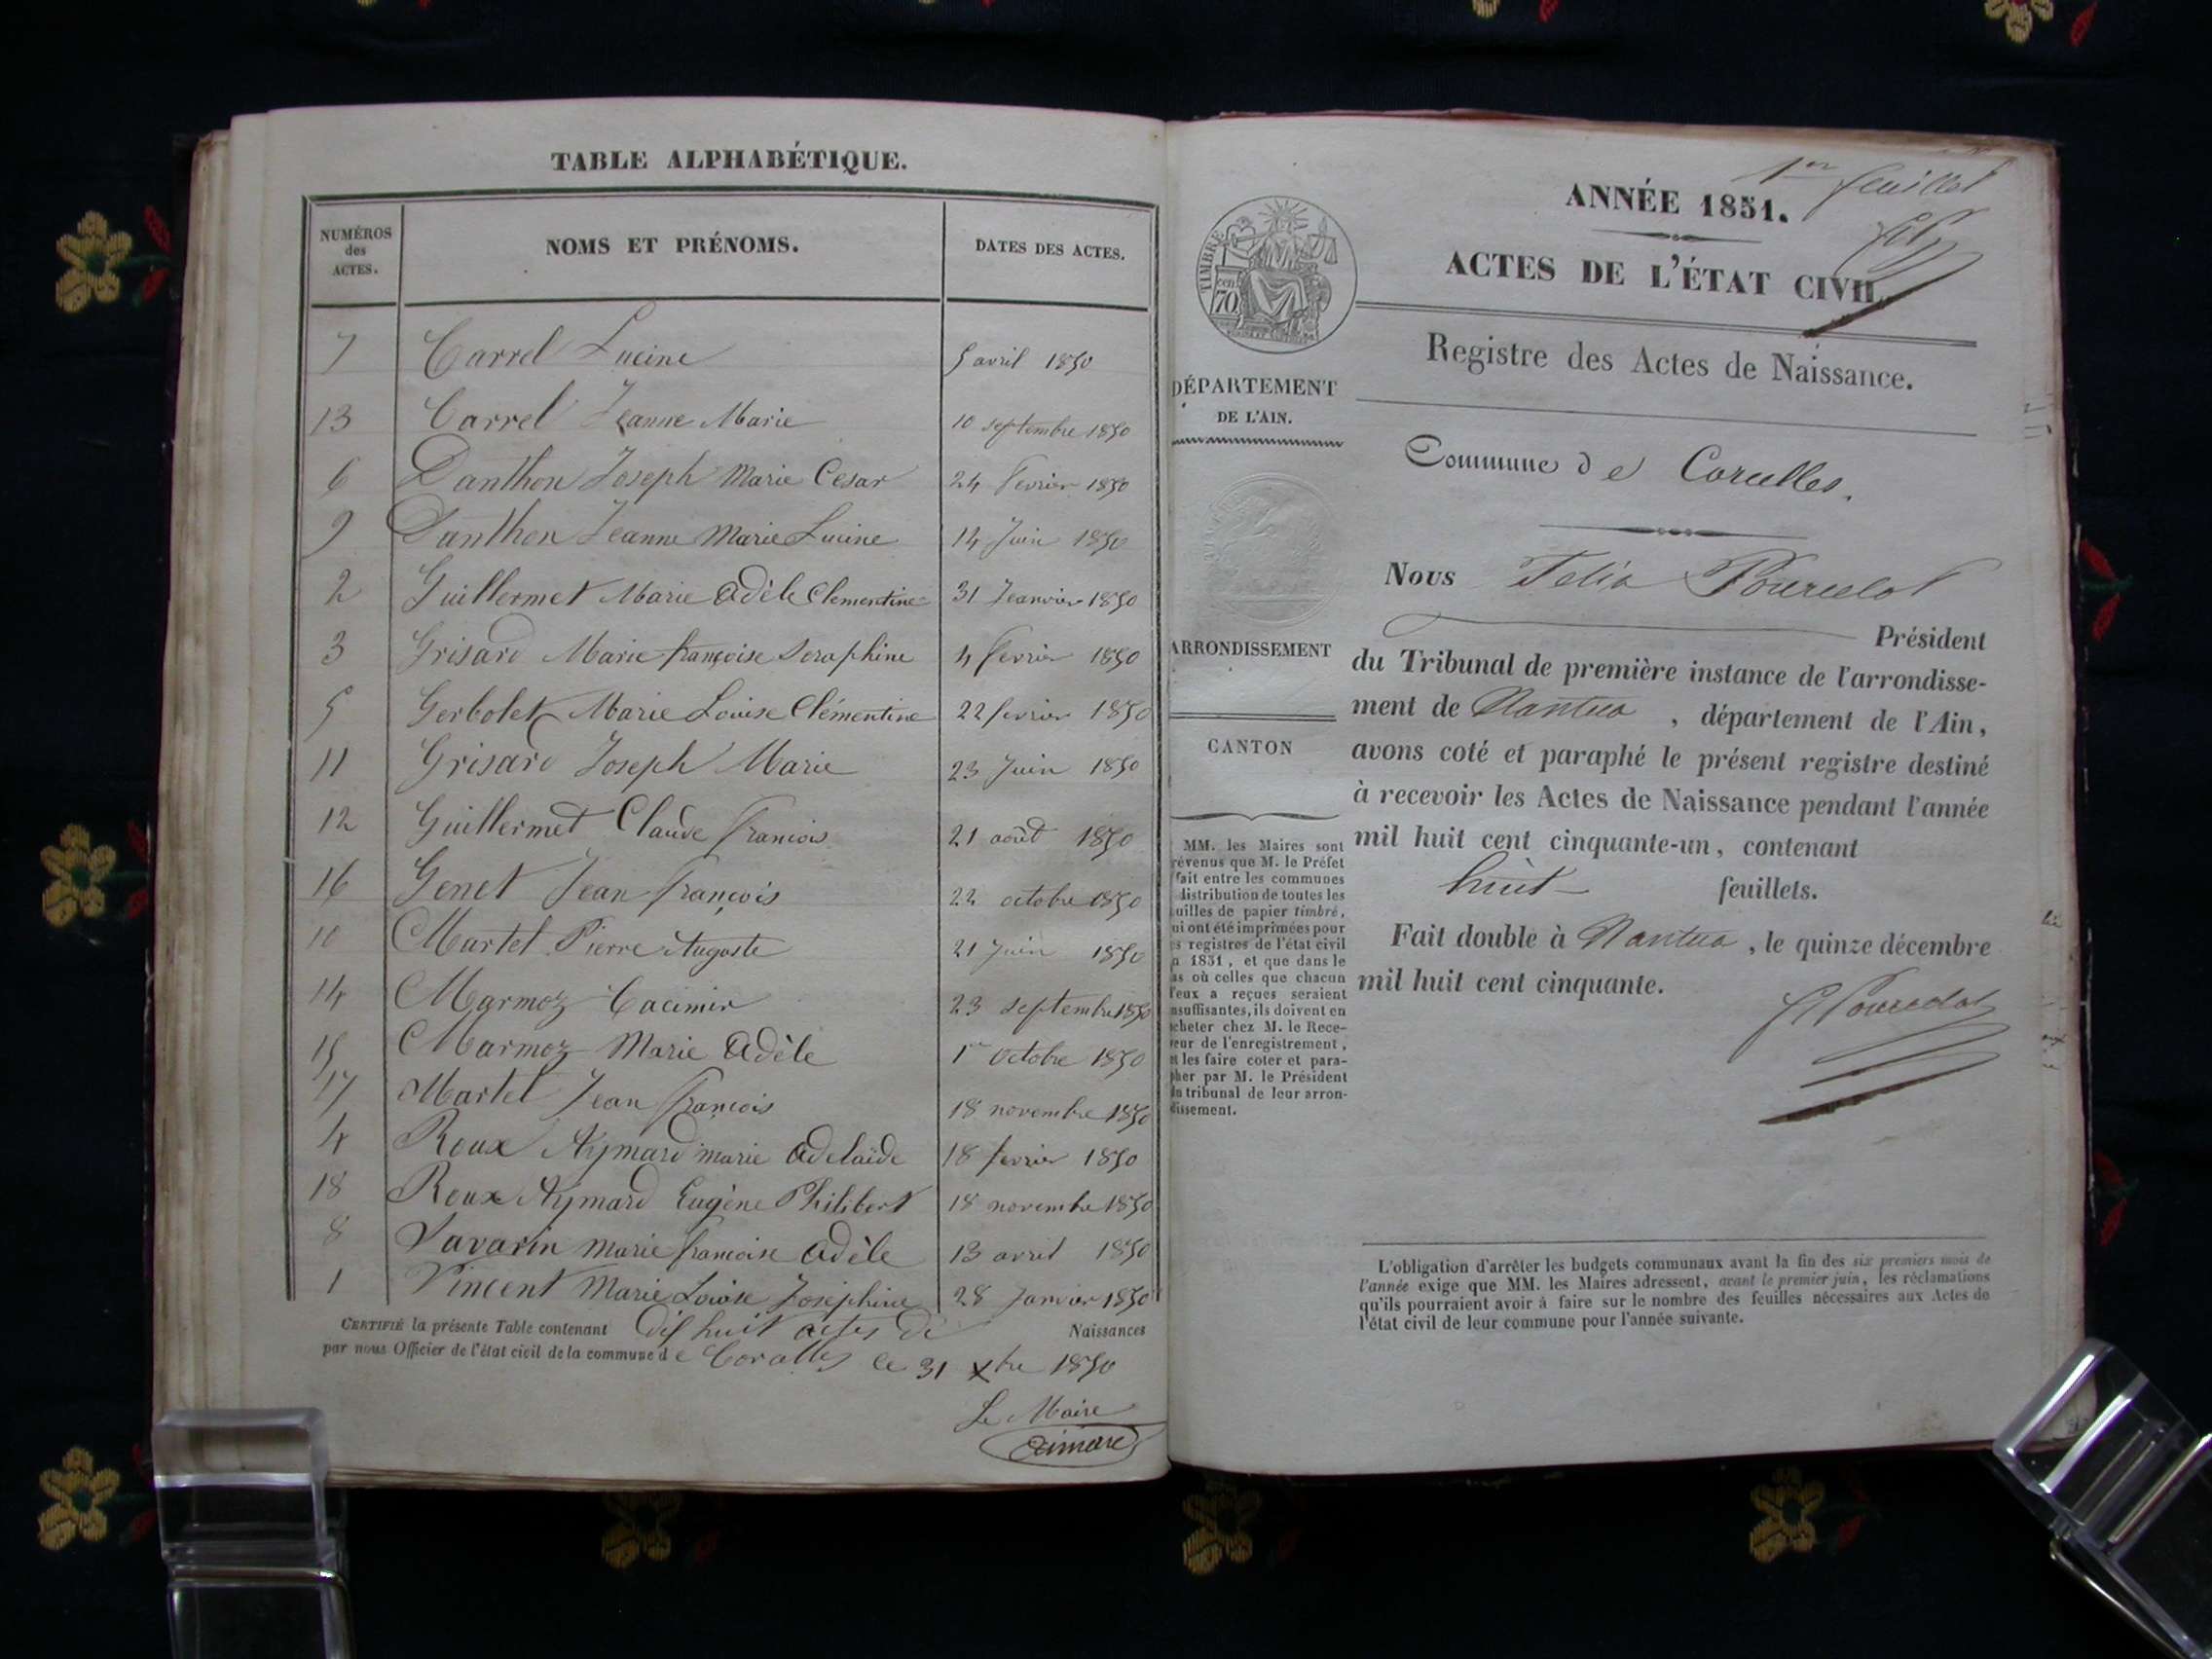 TABLE ALPHABÉTIQUE.
NUMÉROS des ACTES.
NOMS ET PRÉNOMS.
DATES DES ACTES.
7 Carrel Lucine 5 avril 1850
13 Carrel Jeanne Marie 10 septembre 1850
6 Danthon Joseph Marie Cesar 24 fevrier 1850
9 Danthon Jeanne Marie Lucine 14 Juin 1850
2 Guillermet Marie Adèle Clementine 31 Jeanvier 1850
3 Grisard Marie françoise Seraphine 4 fevrier 1850
5 Gerbolet Marie Louise Clémentine 22 fevrier 1850
11 Grisard Joseph Marie 23 Juin 1850
12 Guillermet Claude francois 21 août 1850
16 Genet Jean françois 22 octobre 1850
10 Martel Pierre Auguste 21 Juin 1850
14 Marmoz Cacimir 23 septembre 1850
15 Marmoz Marie Adèle 1er octobre 1850
17 Martel Jean françois 18 novembre 1850
4 Roux Aymard marie Adelaïde 18 fevrier 1850
18 Roux Aymard Eugène Philibert 18 novembre 1850
8 Savarin marie francoise Adèle 13 avril 1850
1 Vincent Marie Louise Josephine 28 Janvier 1850
CERTIFIÉ la présente Table contenant dix huit actes de Naissances
par nous Officier de l'état civil de la commune de Corcelles ce 31 Xbre 1850
Le Maire
1er feuillet
ANNÉE 1851.
ACTES DE L'ÉTAT CIVIL.
TIMBRE
70 cen
Registre des Actes de Naissance.
DÉPARTEMENT
DE L'AIN.
Commune de Corcelles.
Nous Félix Pourcelot
Président
ARRONDISSEMENT
du Tribunal de première instance de l'arrondisse-
ment de Nantua, département de l'Ain,
CANTON
avons coté et paraphé le présent registre destiné
à recevoir les Actes de Naissance pendant l'année
mil huit cent cinquante-un, contenant
huit feuillets.
Fait double à Nantua, le quinze décembre
mil huit cent cinquante.
F Pourcelot
MM. les Maires sont
révenus que M. le Préfet
fait entre les communes
distribution de toutes les
uilles de papier timbré,
ui ont été imprimées pour
s registres de l'état civil
n 1851, et que dans le
as où celles que chacun
'eux a reçues seraient
nsuffisantes, ils doivent en
cheter chez M. le Rece-
eur de l'enregistrement,
t les faire coter et para-
pher par M. le Président
du tribunal de leur arron-
dissement.
L'obligation d'arrêter les budgets communaux avant la fin des six premiers mois de
l'année exige que MM. les Maires adressent, avant le premier juin, les réclamations
qu'ils pourraient avoir à faire sur le nombre des feuilles nécessaires aux Actes de
l'état civil de leur commune pour l'année suivante.